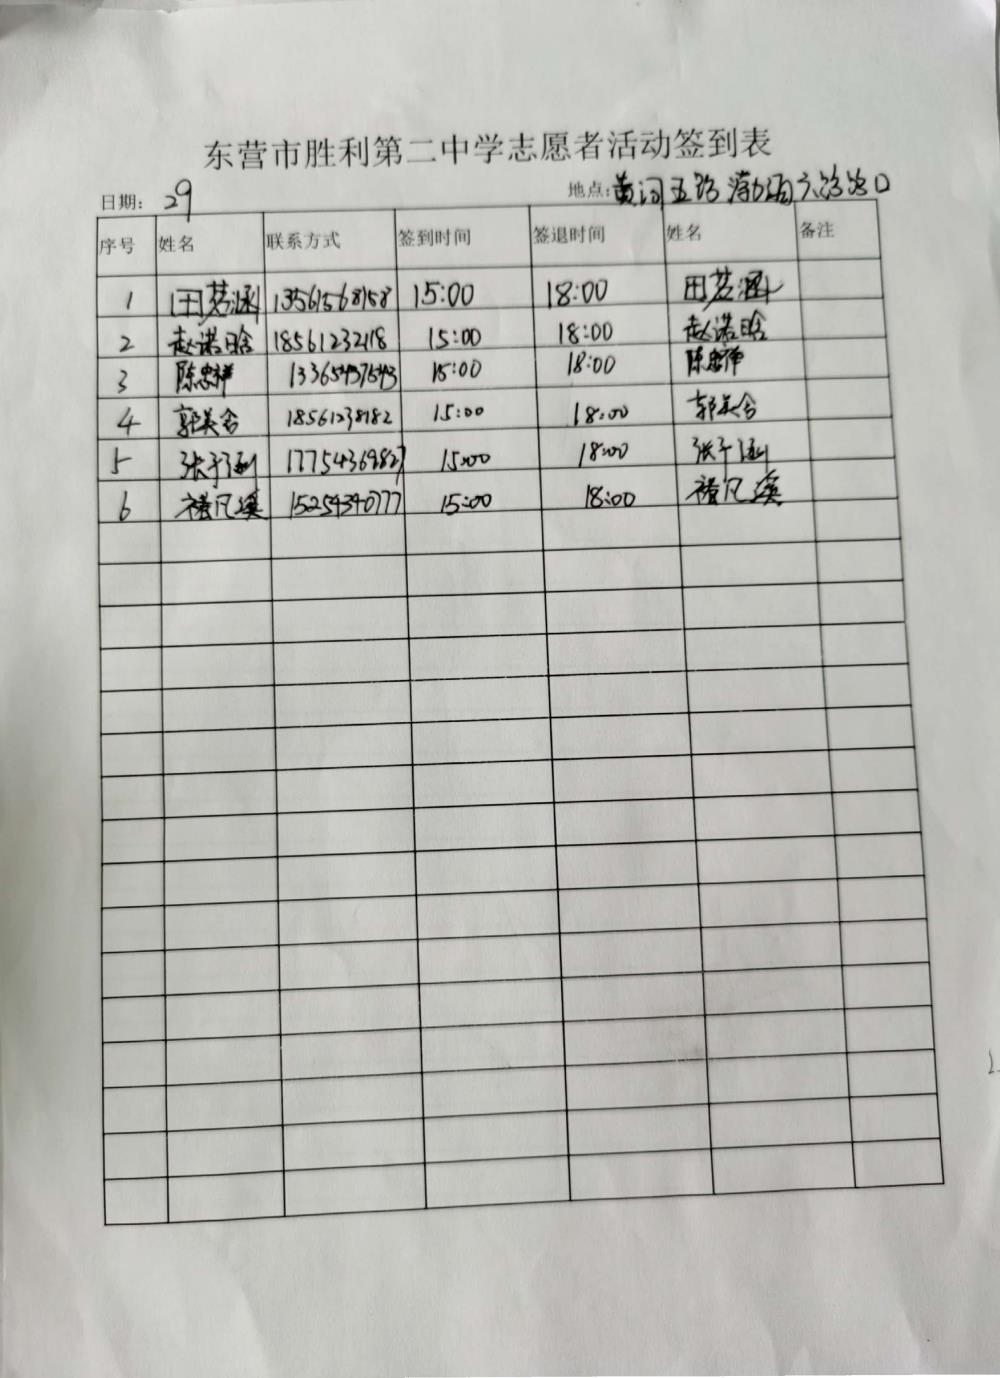 东营市胜利第二中学志愿者活动签到表
日期: 29 地点: 黄河五路 渤海六路路口
序号 姓名 联系方式 签到时间 签退时间 姓名 备注
1 田茗涵 13561568158 15:00 18:00 田茗涵
2 赵诺晗 18561232118 15:00 18:00 赵诺晗
3 陈忠祥 13365437543 15:00 18:00 陈忠祥
4 郭美含 18561238182 15:00 18:00 郭美含
5 张予涵 17754369827 15:00 18:00 张予涵
6 禚凡溪 15254340777 15:00 18:00 禚凡溪